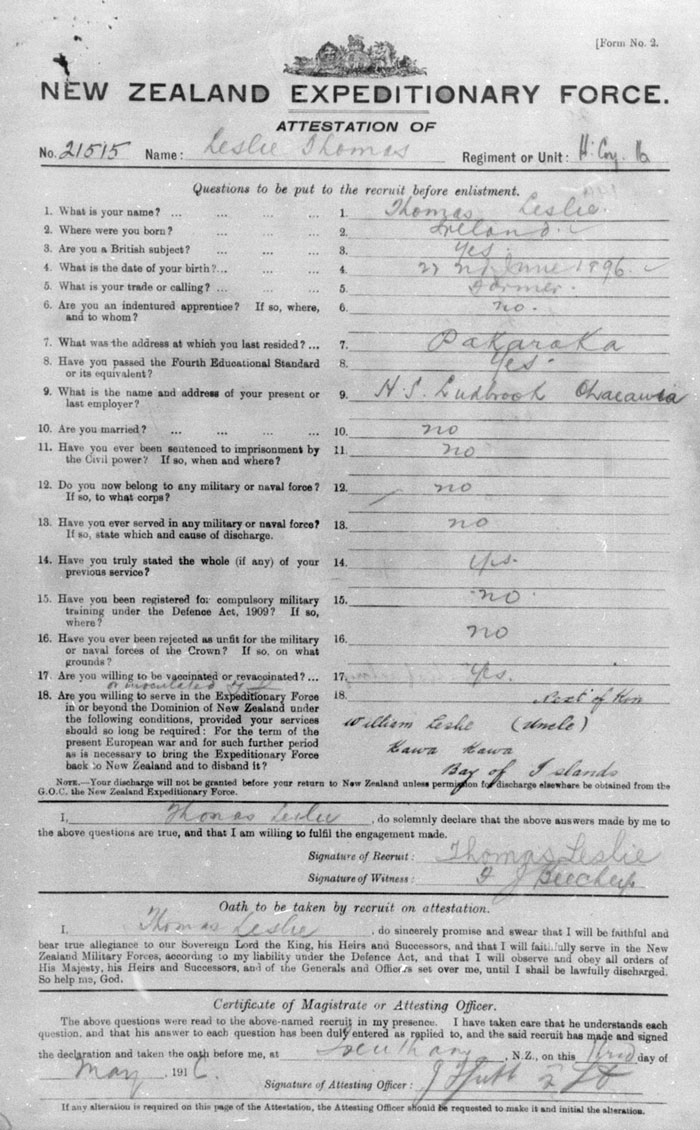 [Form No. 2.
NEW ZEALAND EXPEDITIONARY FORCE.
ATTESTATION OF
No. 21515 Name: Leslie Thomas Regiment or Unit: H. Coy. 16
Questions to be put to the recruit before enlistment.
1. What is your name? ... ... ... 1. Thomas Leslie.
2. Where were you born? ... ... 2. Ireland.
3. Are you a British subject? ... ... 3. Yes.
4. What is the date of your birth?... ... 4. 22nd June 1896.
5. What is your trade or calling? ... ... 5. Farmer.
6. Are you an indentured apprentice? If so, where, 6. no.
and to whom?
7. What was the address at which you last resided? ... 7. Pakaraka
8. Have you passed the Fourth Educational Standard 8. Yes.
or its equivalent?
9. What is the name and address of your present or 9. H. S. Ludbrook Ohaeawai
last employer?
10. Are you married? ... ... ... ... 10. no
11. Have you ever been sentenced to imprisonment by 11. no
the Civil power? If so, when and where?
12. Do you now belong to any military or naval force? 12. no
If so, to what corps?
13. Have you ever served in any military or naval force? 13. no
If so, state which and cause of discharge.
14. Have you truly stated the whole (if any) of your 14. yes.
previous service?
15. Have you been registered for compulsory military 15. no.
training under the Defence Act, 1909? If so,
where?
16. Have you ever been rejected as unfit for the military 16. no
or naval forces of the Crown? If so, on what
grounds?
17. Are you willing to be vaccinated or revaccinated? ... 17. yes.
or inoculated
18. Are you willing to serve in the Expeditionary Force 18. Next of Kin
in or beyond the Dominion of New Zealand under
the following conditions, provided your services William Leslie (Uncle)
should so long be required: For the term of the
present European war and for such further period Kawa Kawa
as is necessary to bring the Expeditionary Force
back to New Zealand and to disband it? Bay of Islands
NOTE.—Your discharge will not be granted before your return to New Zealand unless permission for discharge elsewhere be obtained from the
G.O.C. the New Zealand Expeditionary Force.
I, Thomas Leslie, do solemnly declare that the above answers made by me to
the above questions are true, and that I am willing to fulfil the engagement made.
Signature of Recruit: Thomas Leslie
Signature of Witness: J
Oath to be taken by recruit on attestation.
I, Thomas Leslie, do sincerely promise and swear that I will be faithful and
bear true allegiance to our Sovereign Lord the King, his Heirs and Successors, and that I will faithfully serve in the New
Zealand Military Forces, according to my liability under the Defence Act, and that I will observe and obey all orders of
His Majesty, his Heirs and Successors, and of the Generals and Officers set over me, until I shall be lawfully discharged.
So help me, God.
Certificate of Magistrate or Attesting Officer.
The above questions were read to the above-named recruit in my presence. I have taken care that he understands each
question, and that his answer to each question has been duly entered as replied to, and the said recruit has made and signed
the declaration and taken the oath before me, at Trentham, N.Z., on this third day of
May 1916.
Signature of Attesting Officer: Lt
If any alteration is required on this page of the Attestation, the Attesting Officer should be requested to make it and initial the alteration.